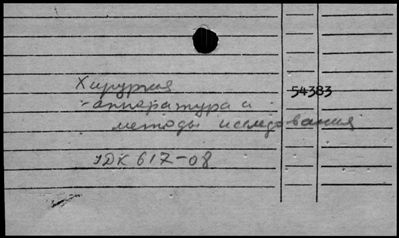 Хирургия
54383
- аппаратура и
методы исследования
УДК 617-08